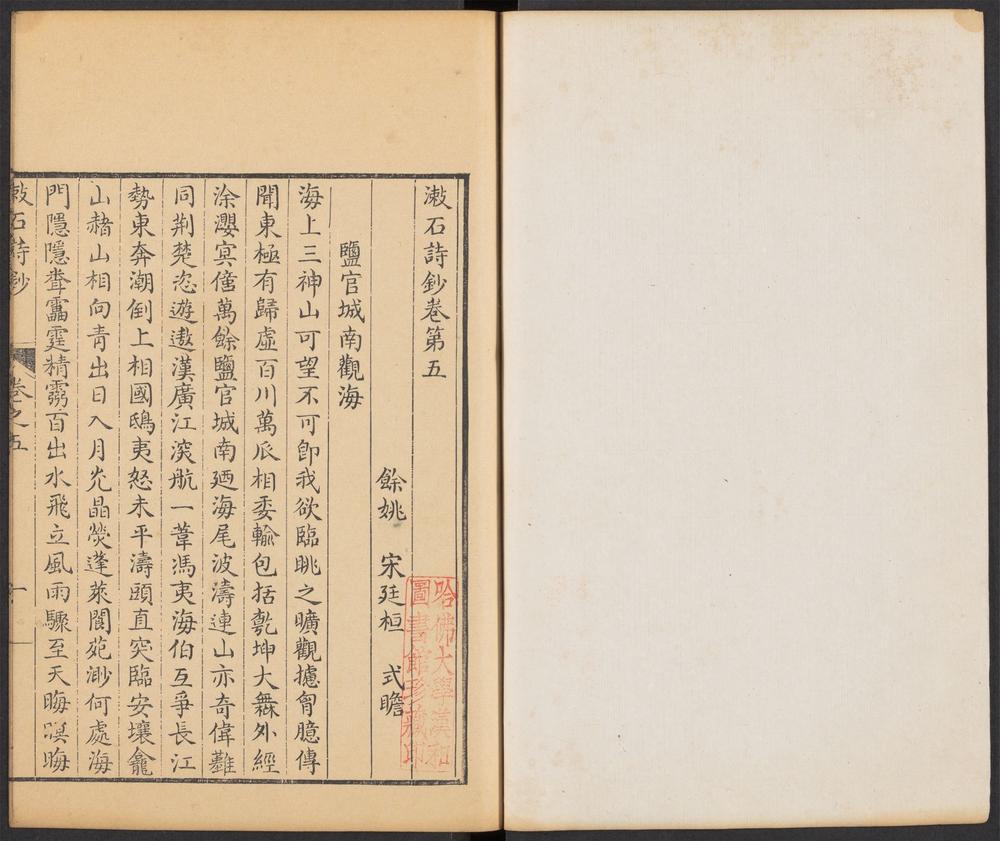 漱石詩鈔卷第五
餘姚 宋廷桓 式瞻
鹽官城南觀海
海上三神山可望不可卽我欲臨眺之曠觀攄胷臆傳
聞東極有歸虛百川萬𠂢相委輸包括乾坤大無外經
涂瀴㝠億萬餘鹽官城南迺海尾波濤連山亦奇偉雖
同荆楚恣遊遨漢廣江深航一葦馮夷海伯互爭長江
勢東奔潮倒上相國鴟夷怒未平濤頭直突臨安壤龕
山赭山相向靑出日入月光晶熒蓬萊閬苑渺何處海
門隱隱聾靁霆精霧百出水飛立風雨驟至天晦㝠晦
漱石詩鈔
卷之五
一
哈佛大學漢和
圖書館珍藏印